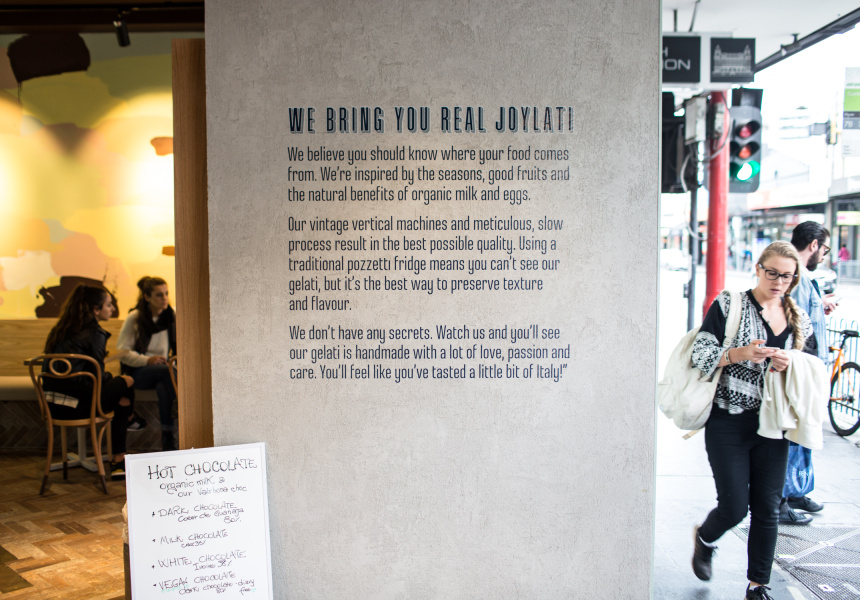 WE BRING YOU REAL JOYLATI
We believe you should know where your food comes
from. We're inspired by the seasons, good fruits and
the natural benefits of organic milk and eggs.
Our vintage vertical machines and meticulous, slow
process result in the best possible quality. Using a
traditional pozzetti fridge means you can't see our
gelati, but it's the best way to preserve texture
and flavour.
We don't have any secrets. Watch us and you'll see
our gelati is handmade with a lot of love, passion and
care. You'll feel like you've tasted a little bit of Italy!"
HOT CHOCOLATE
organic milk &
our Valrhona choc
DARK CHOCOLATE
80%
MILK CHOCOLATE
WHITE CHOCOLATE
Ivoire 35%
VEGAN CHOCOLATE
dark chocolate dairy
free